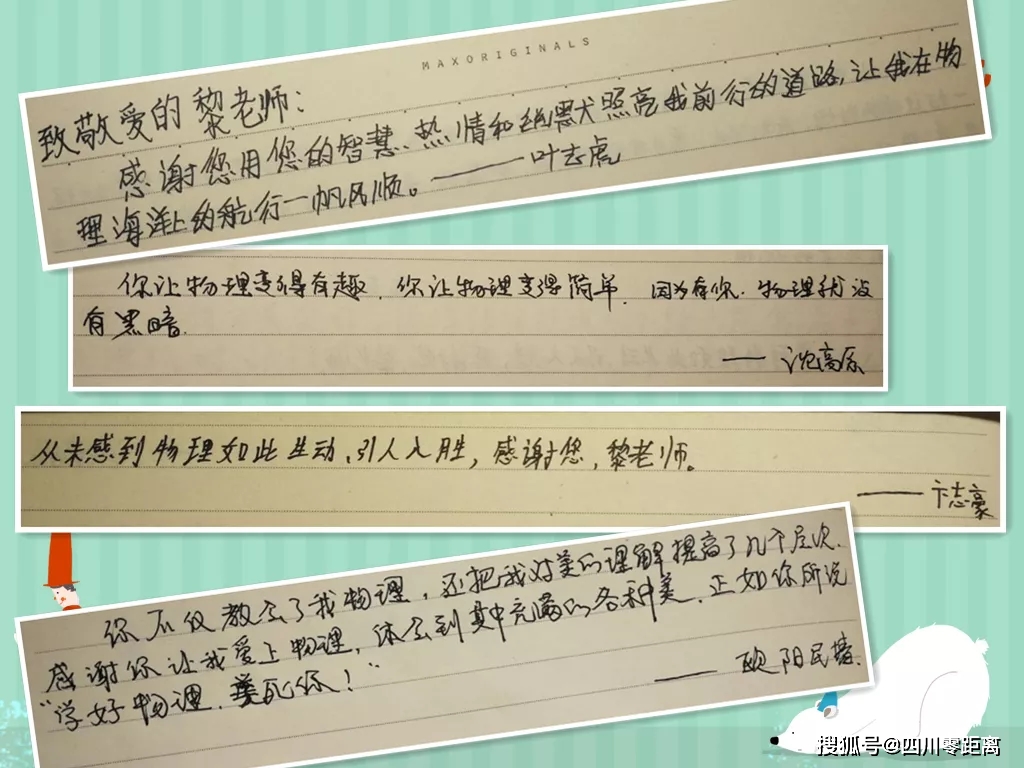 MAXORIGINALS
致敬爱的黎老师:
感谢您用您的智慧、热情和幽默犬照亮我前行的道路,让我在物
理海洋上的航行一帆风顺。——叶志虎
你让物理变得有趣,你让物理变得简单,因为有你,物理我没
有黑暗.
——沈高原
从未感到物理如此生动、引人入胜,感谢您,黎老师。
——卞志豪
你不仅教会了我物理,还把我对美的理解提高了几个层次.
感谢你让我爱上物理,体会到其中充满的各种美.正如你所说
“学好物理,美死你!”
——欧阳民
搜狐号@四川零距离